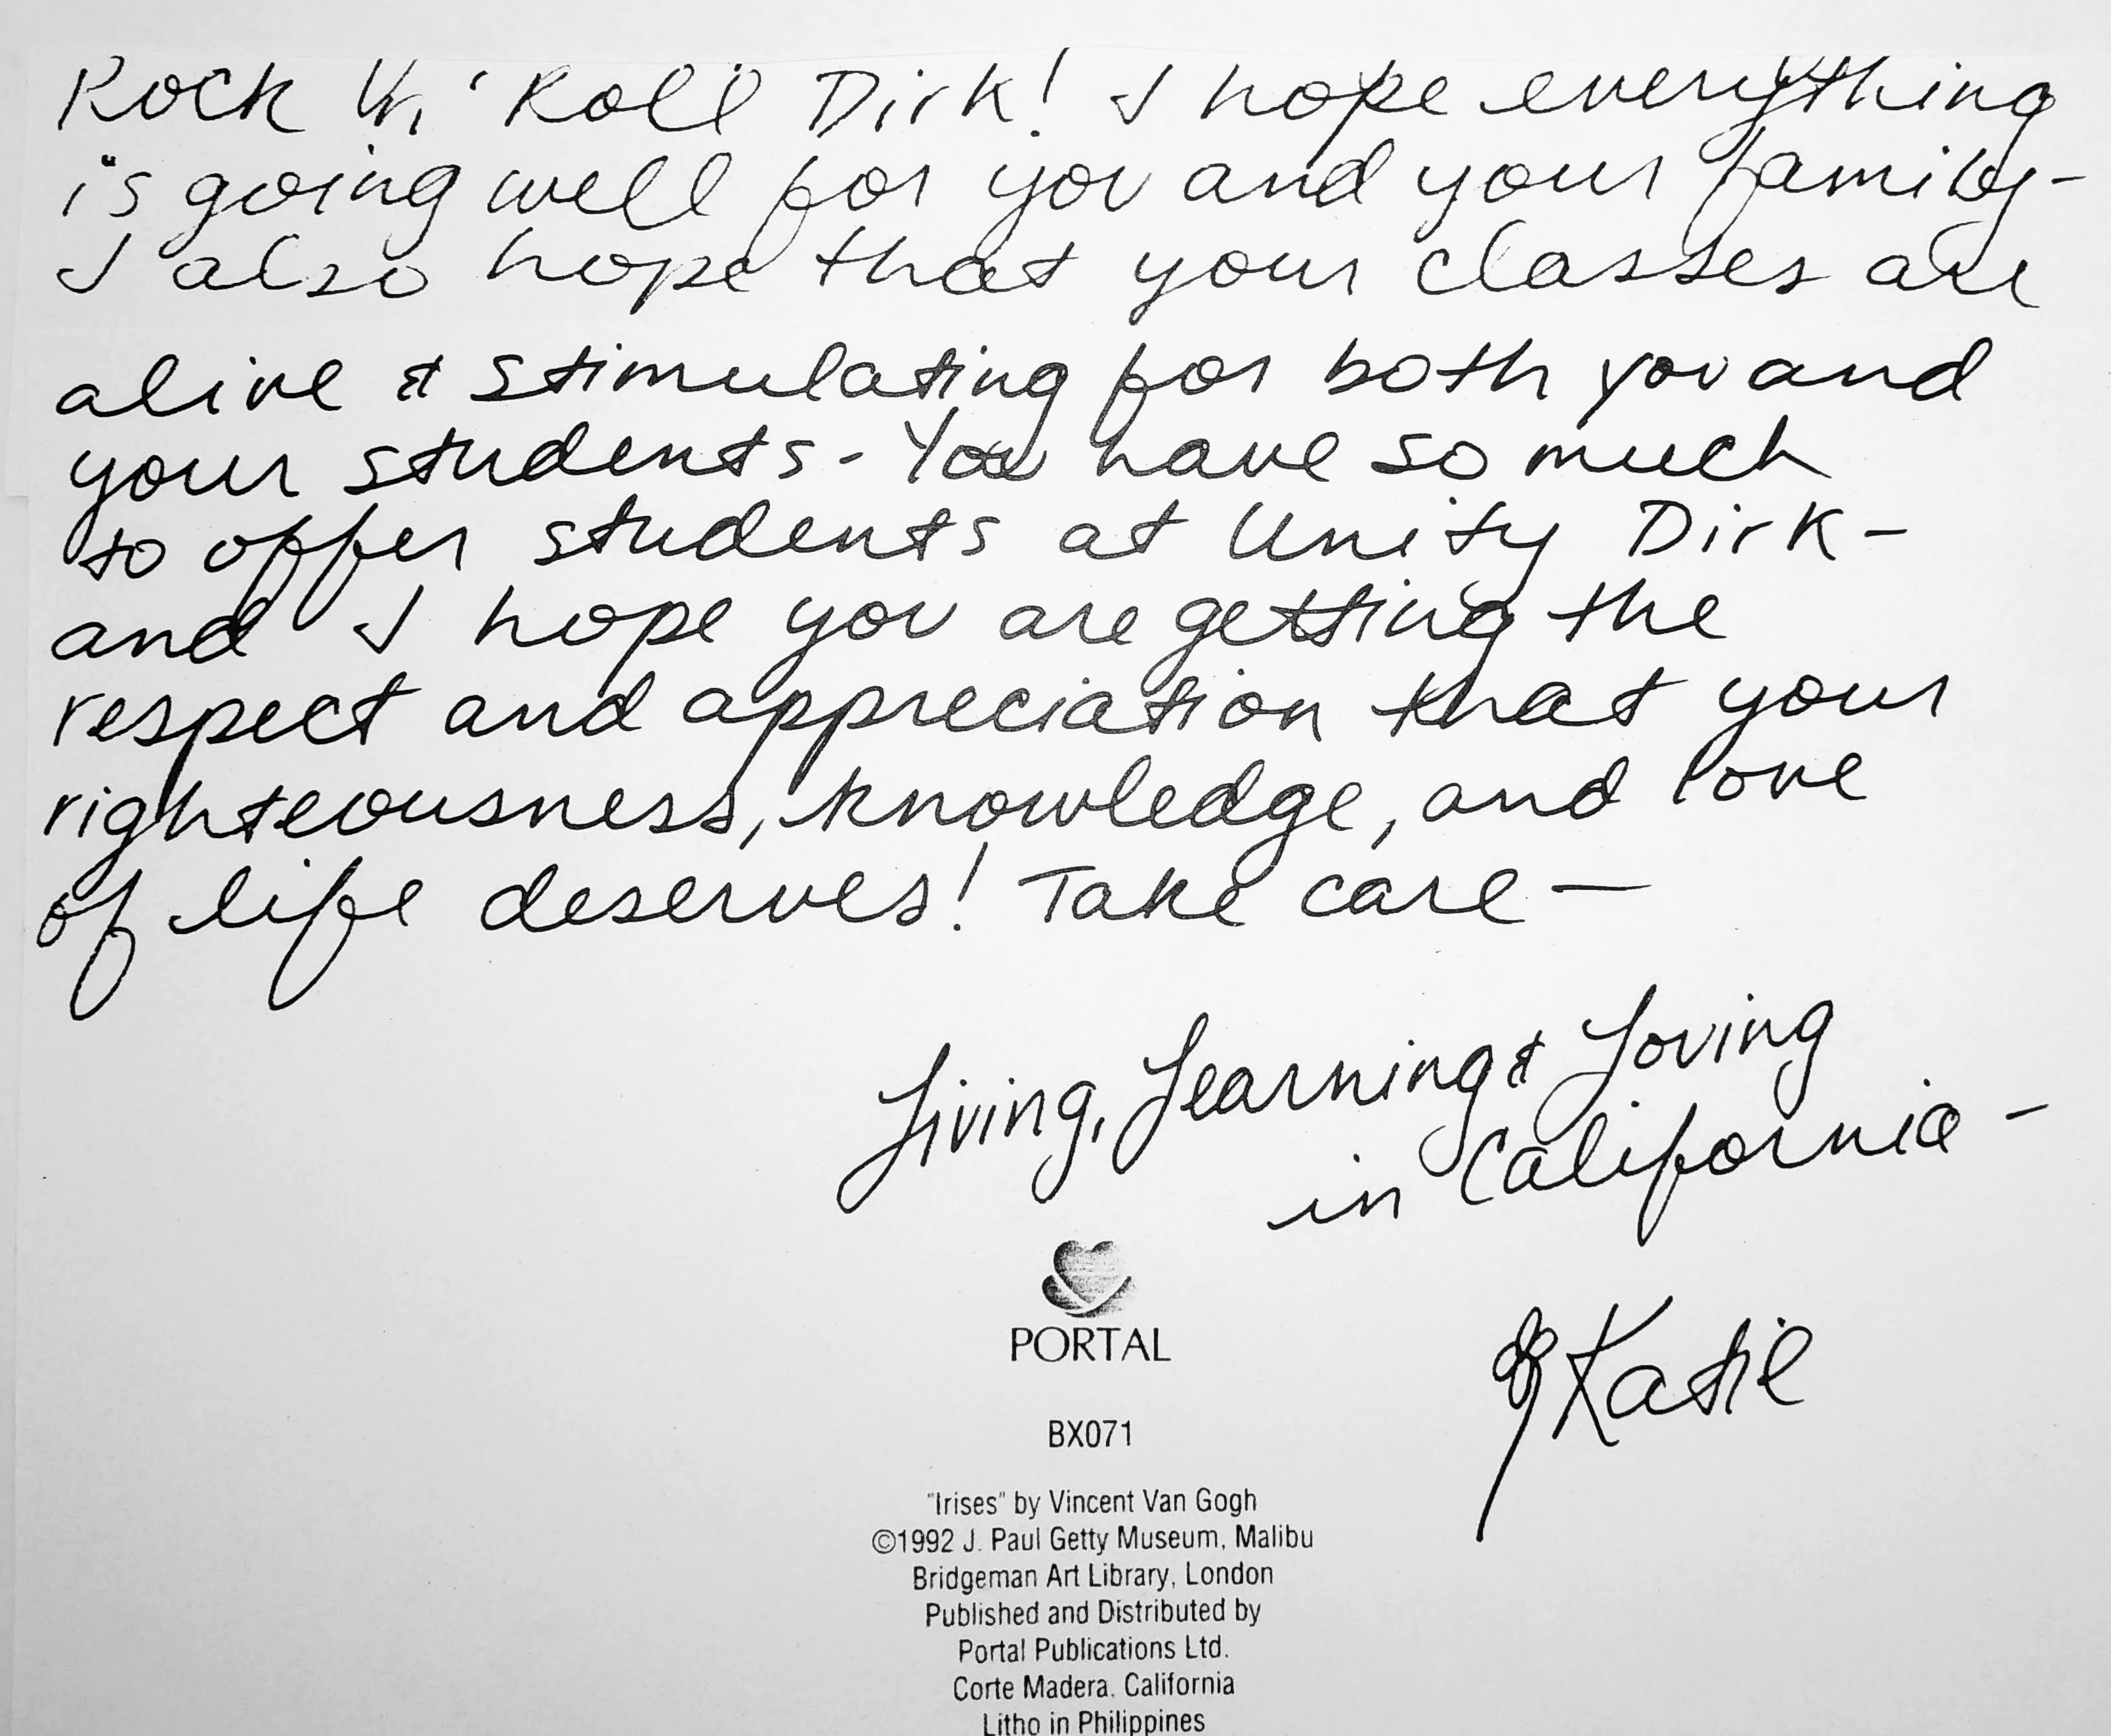 Rock 'n' Roll Dirk! I hope everything
is going well for you and your family-
I also hope that your classes are
alive & stimulating for both you and
your students - You have so much
to offer students at Unity Dirk -
and I hope you are getting the
respect and appreciation that your
righteousness, knowledge, and love
of life deserves! Take care —
Living, Learning & Loving
in California -
Katie
PORTAL
BX071
"Irises" by Vincent Van Gogh
©1992 J. Paul Getty Museum, Malibu
Bridgeman Art Library, London
Published and Distributed by
Portal Publications Ltd.
Corte Madera, California
Litho in Philippines